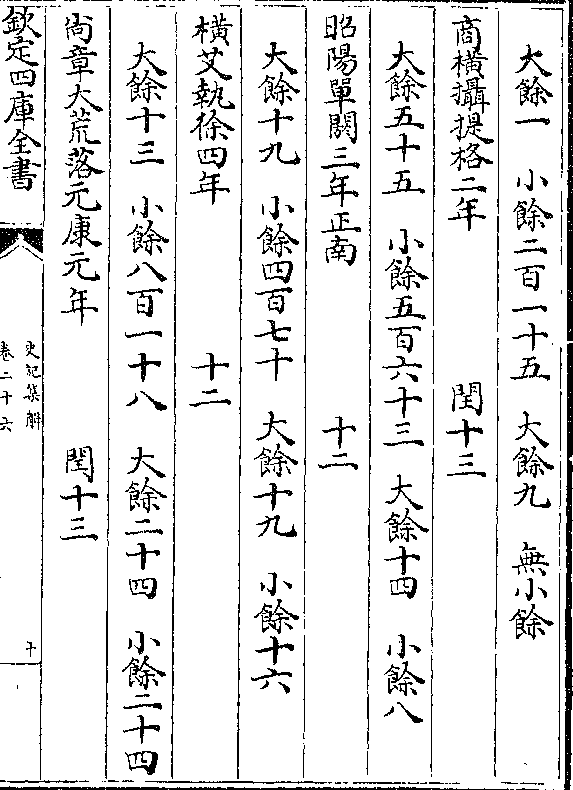 大餘一　小餘二百一十五　大餘九　無小餘
商橫攝提格二年　閏十三
大餘五十五　小餘五百六十三　大餘十四　小餘八
昭陽單閼三年正南　十二
大餘十九　小餘四百七十　大餘十九　小餘十六
橫艾執徐四年　十二
大餘十三　小餘八百一十八　大餘二十四　小餘二十四
尚章大荒落元康元年　閏十三
欽定四庫全書
史記集解
卷二十六
十